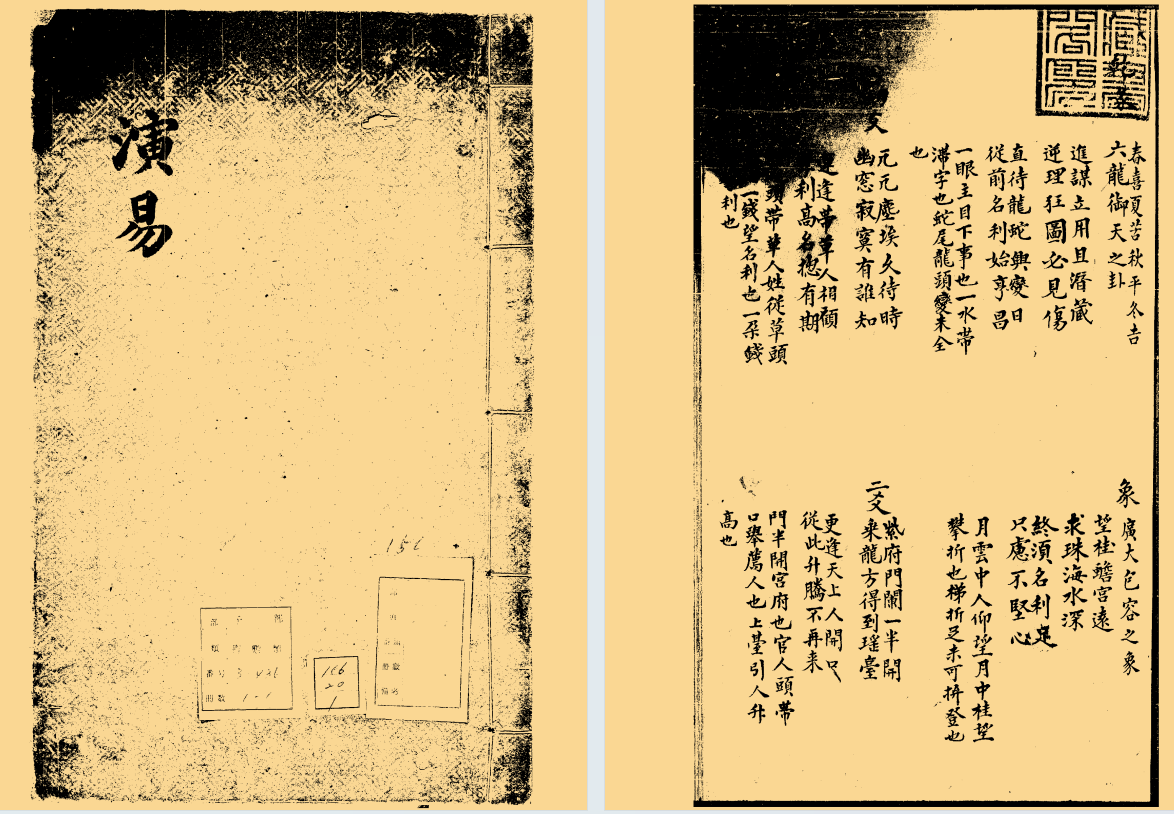 演易
156
部
番号
冊数 1-1
166
20
1
春喜夏苦秋平冬吉
六龍御天之卦
進謀立用且潛藏
逆理狂圖必見傷
直待龍蛇興變日
從前名利始亨昌
一眼主目下事也一水帶
滯字也蛇尾龍頭變未全
也
爻
元元塵埃久待時
幽窓寂寞有誰知
逢帶草人相顧
利高名揔有期
頭帶草人姓從草頭
一錢望名利也一朶錢
利也
象 廣大包容之象
望桂蟾宮遠
求珠海水深
終須名利足
只慮不堅心
月雲中人仰望月中桂望
攀折也梯折足未可擠登也
二爻
紫府門闌一半開
来龍方得到瑶臺
更逢天上人開口
從此升騰不再来
門半開宮府也官人頭帶
口舉薦人也上臺引人升
高也